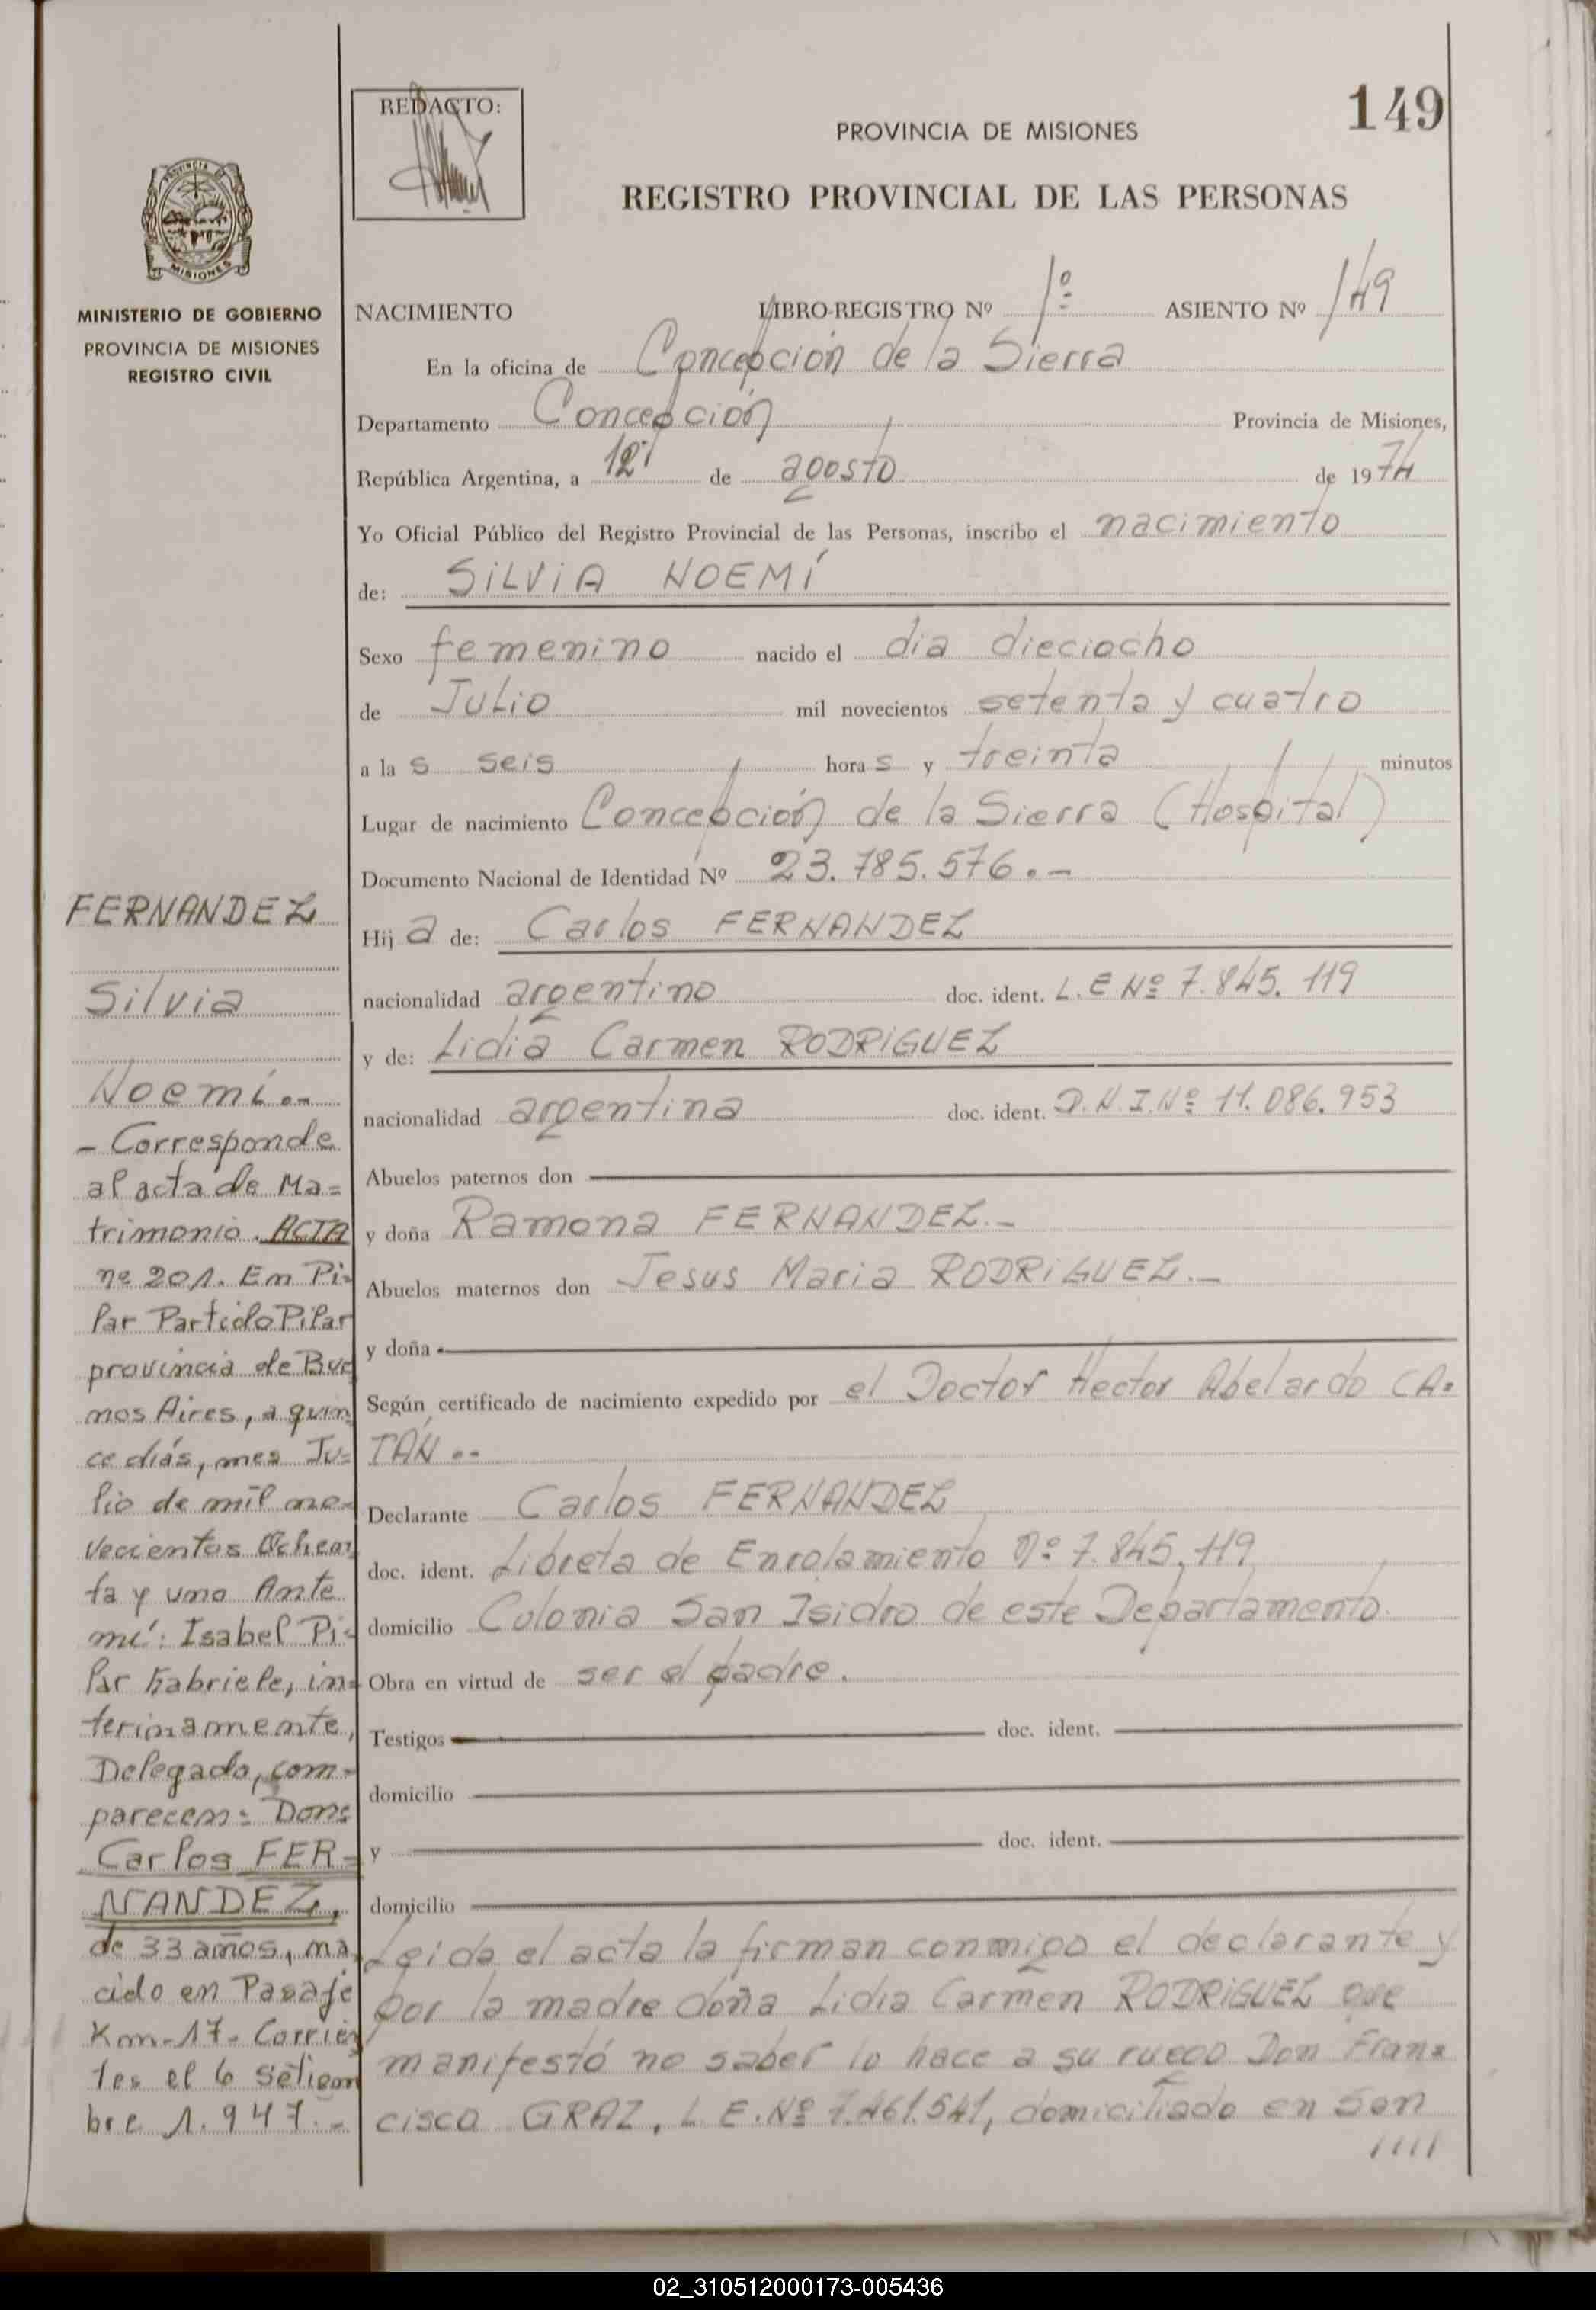 149
REDACTO:
PROVINCIA DE MISIONES
REGISTRO PROVINCIAL DE LAS PERSONAS
PROVINCIA DE
MISIONES
MINISTERIO DE GOBIERNO
PROVINCIA DE MISIONES
REGISTRO CIVIL
NACIMIENTO LIBRO-REGISTRO Nº 1º ASIENTO Nº 149
En la oficina de Concepción de la Sierra
Departamento Concepción Provincia de Misiones,
República Argentina, a 12 de agosto de 1974
Yo Oficial Público del Registro Provincial de las Personas, inscribo el nacimiento
de: SILVIA NOEMÍ
Sexo femenino nacido el dia dieciocho
de Julio mil novecientos setenta y cuatro
a la s seis hora s y treinta minutos
Lugar de nacimiento Concepción de la Sierra (Hospital)
Documento Nacional de Identidad Nº 23.785.576.-
Hij a de: Carlos FERNANDEZ
nacionalidad argentino doc. ident. L.E Nº 7.845.119
y de: Lidia Carmen RODRIGUEZ
nacionalidad argentina doc. ident. D.N.I.Nº 11.086.953
Abuelos paternos don
y doña Ramona FERNANDEZ.-
Abuelos maternos don Jesus Maria RODRIGUEZ.-
y doña
Según certificado de nacimiento expedido por el Doctor Hector Abelardo CA=
TÁN.-
Declarante Carlos FERNANDEZ
doc. ident. Libreta de Enrolamiento nº 7.845.119
domicilio Colonia San Isidro de este Departamento.
Obra en virtud de ser el padre.
Testigos doc. ident.
domicilio
y doc. ident.
domicilio
Leida el acta la firman conmigo el declarante y
por la madre doña Lidia Carmen RODRIGUEZ que
manifestó no saber lo hace a su ruego Don Fran=
cisco GRAZ, L.E.Nº 7.461.541, domiciliado en San
////
FERNANDEZ
Silvia
Noemí.-
- Corresponde
al acta de Ma=
trimonio. ACTA
nº 201. En Pi=
lar Partido Pilar
provincia de Bue
nos Aires, a quin
ce días, mes Ju=
lio de mil no=
vecientos Ochen
ta y uno Ante
mí: Isabel Pi=
lar Kabriele, in=
terinamente,
Delegada, com=
parecen: Don:
Carlos FER=
NANDEZ,
de 33 años, na
cido en Pasaje
Km-17- Corrien
tes el 6 setiem
bre 1.947.-
02_310512000173-005436